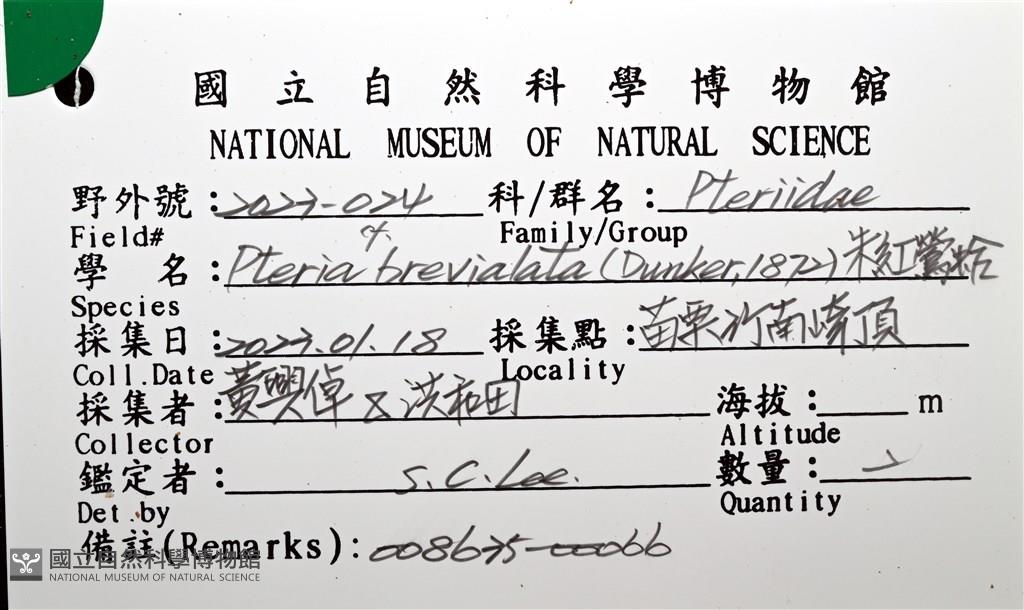 國立自然科學博物館
NATIONAL MUSEUM OF NATURAL SCIENCE
野外號: 2023-024 科/群名: Pteriidae
Field# Family/Group
學 名: Pteria brevialata (Dunker, 1872) 朱紅鶯蛤
Species
採集日: 2023.01.18 採集點: 苗栗竹南崎頂
Coll.Date Locality
採集者: 黃興倬 & 洪和田 海拔: m
Collector Altitude
鑑定者: S.C.Lee. 數量:
Det.by Quantity
備註(Remarks): 008675-00066
國立自然科學博物館
NATIONAL MUSEUM OF NATURAL SCIENCE